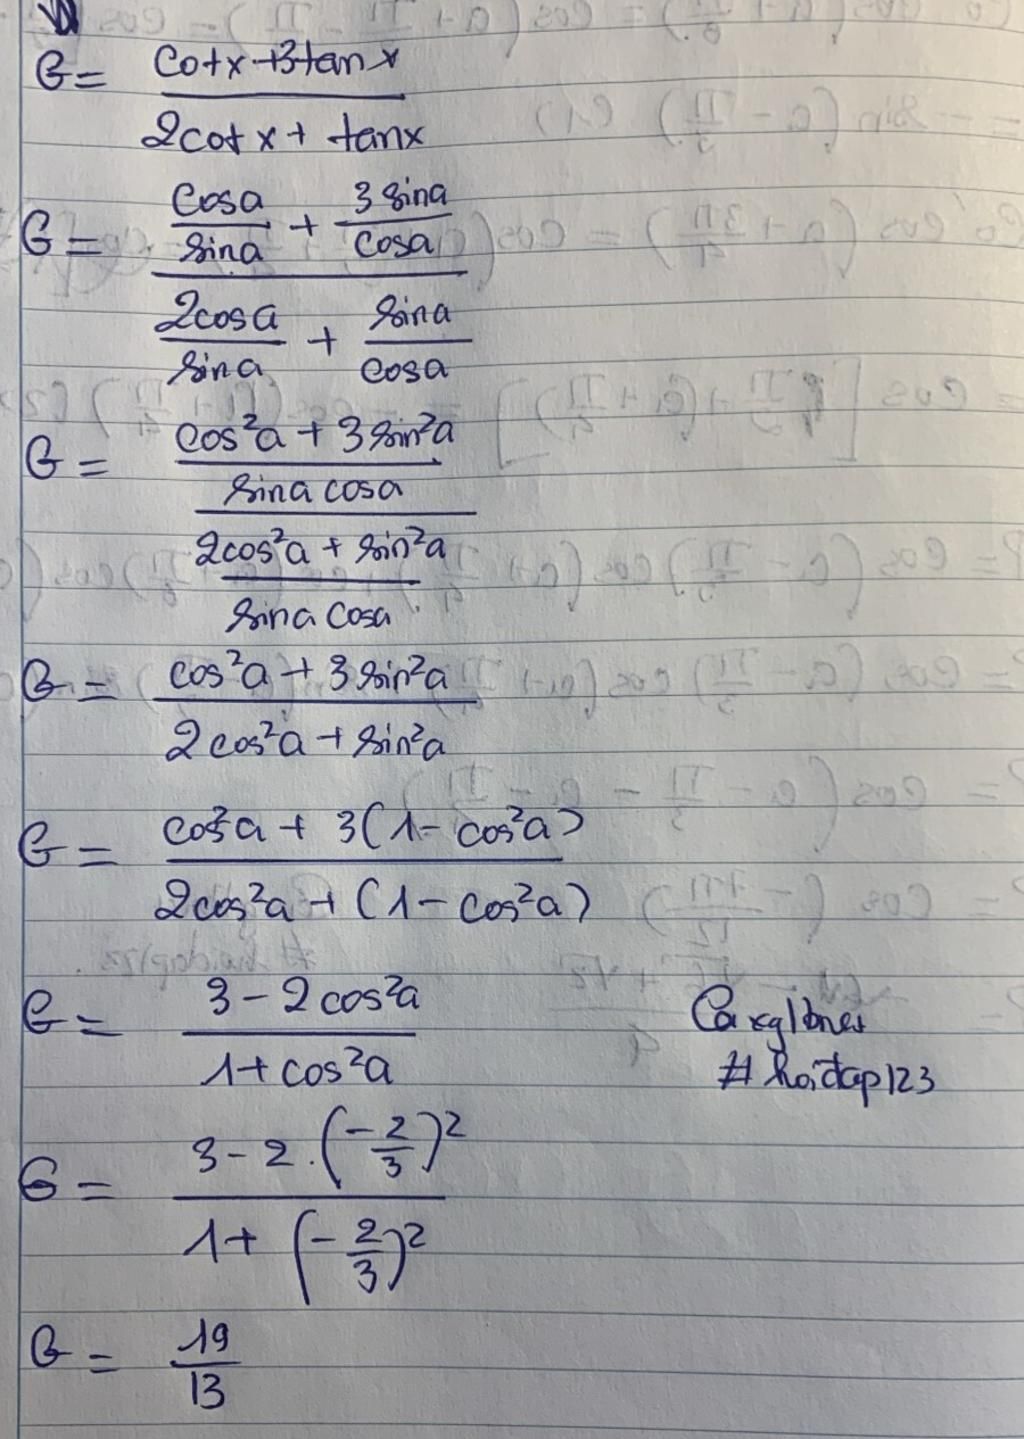 G = (cotx + 3tanx)/(2cotx + tanx)
G = (cosa/sina + 3sina/cosa)/(2cosa/sina + sina/cosa)
G = ((cos²a + 3sin²a)/(sina cosa))/((2cos²a + sin²a)/(sina cosa))
G = (cos²a + 3sin²a)/(2cos²a + sin²a)
G = (cos²a + 3(1 - cos²a))/(2cos²a + (1 - cos²a))
G = (3 - 2cos²a)/(1 + cos²a)
#hoidap123
G = (3 - 2.(-2/3)²)/(1 + (-2/3)²)
G = 19/13